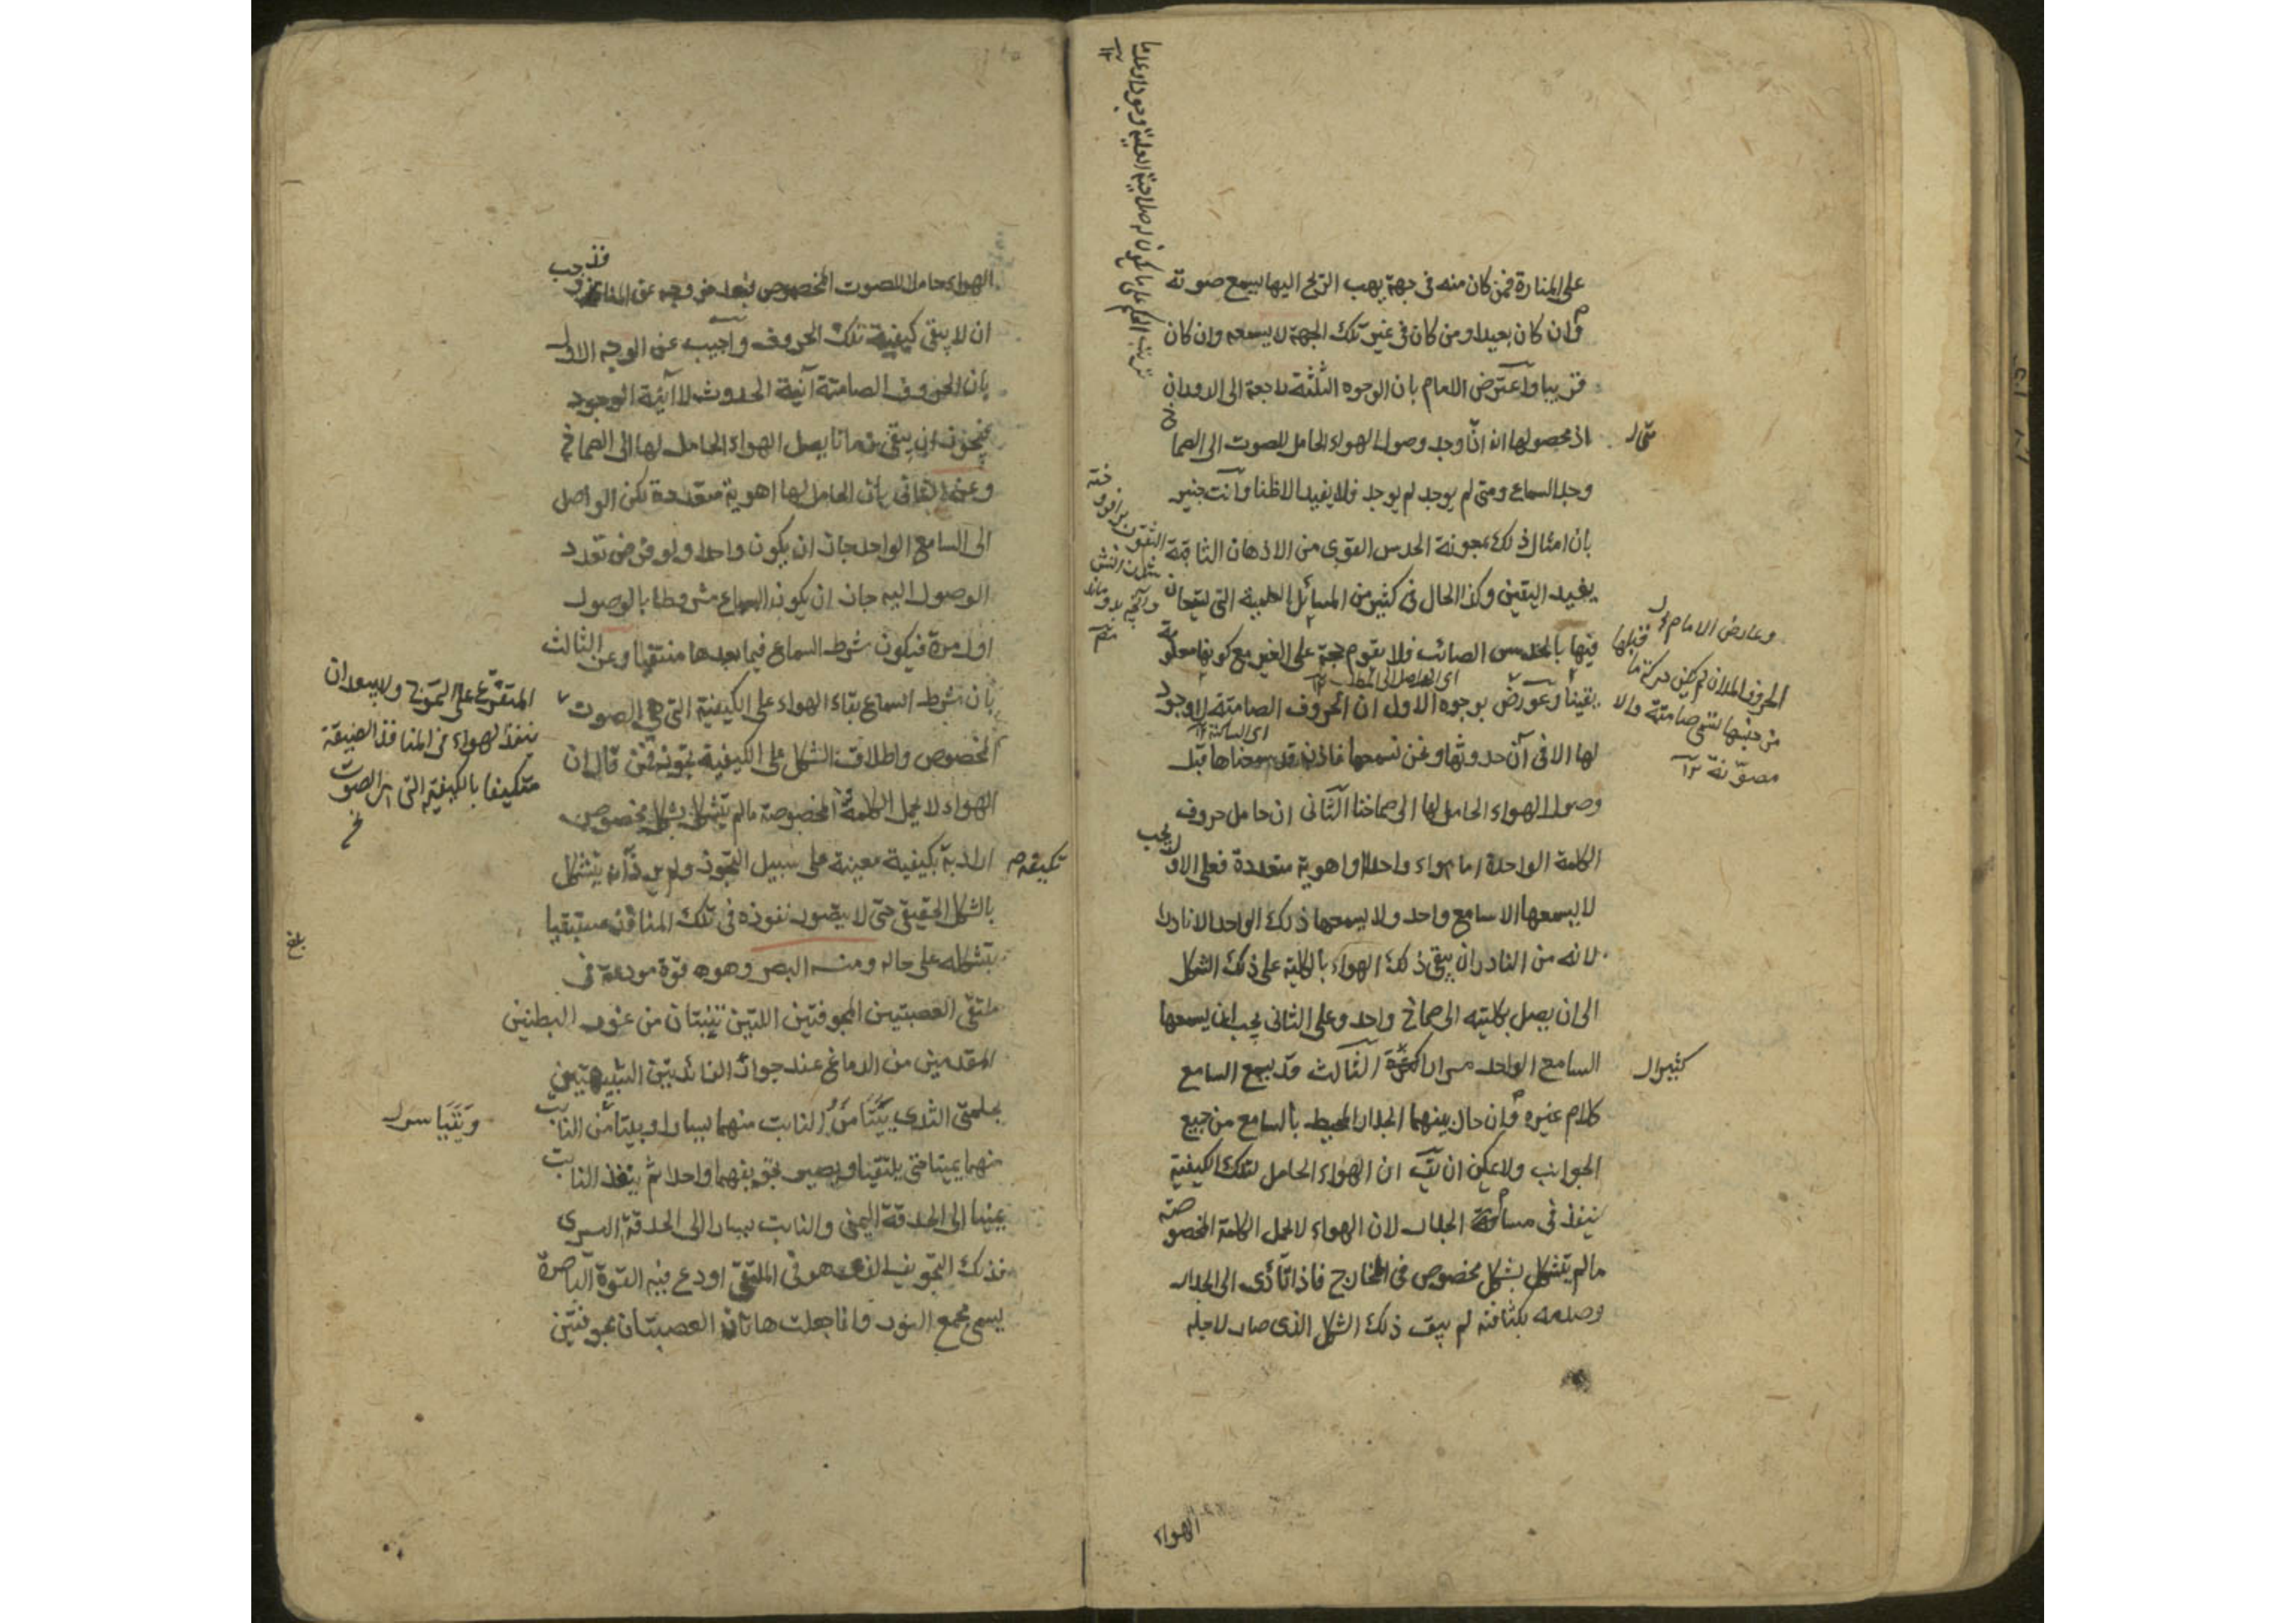 على المنارة فمن كان منه في جهة يهب الريح اليها يسمع صوته
وان كان بعيدا ومن كان في غير تلك الجهة لا يسمعه وان كان
قريبا واعترض الامام بان الوجوه الثلثة راجعة الى الدوران
اذ محصولها انه متى وجد وصول الهواء الحامل للصوت الى الصماخ
وجد السماع ومتى لم يوجد لم يوجد فلا يفيد الا ظنا وانت خبير
بان امثال ذلك بمعونة الحدس القوى من الاذهان الثاقبة
يفيد اليقين وكذا الحال في كثير من المسائل العلمية التي يستعان
فيها بالحدس الصائب فلا يقوم حجة على الغير مع كونها معلومة
يقينا وعورض بوجوه الاول ان الحروف الصامتة لا وجود
لها الا في آن حدوثها ونحن نسمعها فاذن قد سمعناها قبل
وصول الهواء الحامل لها الى صماخنا الثانى ان حامل حروف
الكلمة الواحدة اما هواء واحد او اهوية متعددة فعلى الاول يجب
لا يسمعها الا سامع واحد ولا يسمعها ذلك الواحد الا نادرا
لانه من النادر ان يبقى ذلك الهواء بالكلية على ذلك الشكل
الى ان يصل بكليته الى صماخ واحد وعلى الثانى يجب ان يسمعها
السامع الواحد مرارا كثيرة الثالث قد يسمع السامع
كلام غيره وان حال بينهما الجدار المحيط بالسامع من جميع
الجوانب ولا يمكن ان يق ان الهواء الحامل لتلك الكيفية
ينفذ في مسام الجدار لان الهواء لا يحمل الكلمة المخصوصة
مالم يتشكل بشكل مخصوص في المخارج فاذا تأدى الى الجدار
وصدمه بكثافته لم يبق ذلك الشكل الذى صار لاجله
الهواء
وعارض الامام
مصوتة ١٢
الهواء حاملا للصوت المخصوص فبعد خروجه عن المنافذ وجب
ان لا يبقى كيفية تلك الحروف واجيب عن الوجه الاول
بان الحروف الصامتة آنية الحدوث لا آنية الوجود
فيجوز ان يبقى زمانا يصل الهواء الحامل لها الى الصماخ
وعن الثانى بان الحامل لها اهوية متعددة لكن الواصل
الى السامع الواحد جاز ان يكون واحدا ولو فرض تعدد
الوصول اليه جاز ان يكون السماع مشروطا بالوصول
اول مرة فيكون شرط السماع فيما بعدها منتفيا وعن الثالث
بان شرط السماع بقاء الهواء على الكيفية التي هي الصوت
المخصوص واطلاق الشكل على الكيفية تجوز فمن قال ان
الهواء لا يحمل الكلمة المخصوصة مالم يتشكل بشكل مخصوص
اراد به بكيفية معينة على سبيل التجوز ولم يرد انه يتشكل
بالشكل الحقيقى حتى لا يتصور نفوذه في تلك المنافذ مستبقيا
بتشكله على حاله ومنه البصر وهو قوة مودعة في
ملتقى العصبتين المجوفتين اللتين تنبتان من غور البطنين
المقدمين من الدماغ عند جوار الزائدتين الشبيهتين
بحلمتى الثدى يتيامن النابت منهما يسارا ويتياسر النابت
منهما يمينا حتى يلتقيا ويصير تجويفهما واحدا ثم ينفذ النابت
يمينا الى الحدقة اليمنى والنابت يسارا الى الحدقة اليسرى
فذلك التجويف الذى هو في الملتقى اودع فيه القوة الباصرة
يسمى مجمع النور وانما جعلت هاتان العصبتان مجوفتين
المتفرع على التموج ولا يبعد ان
ينفذ الهواء في المنافذ الضيقة
متكيفا بالكيفية التى هى الصوت
بلغ
ويتياسر